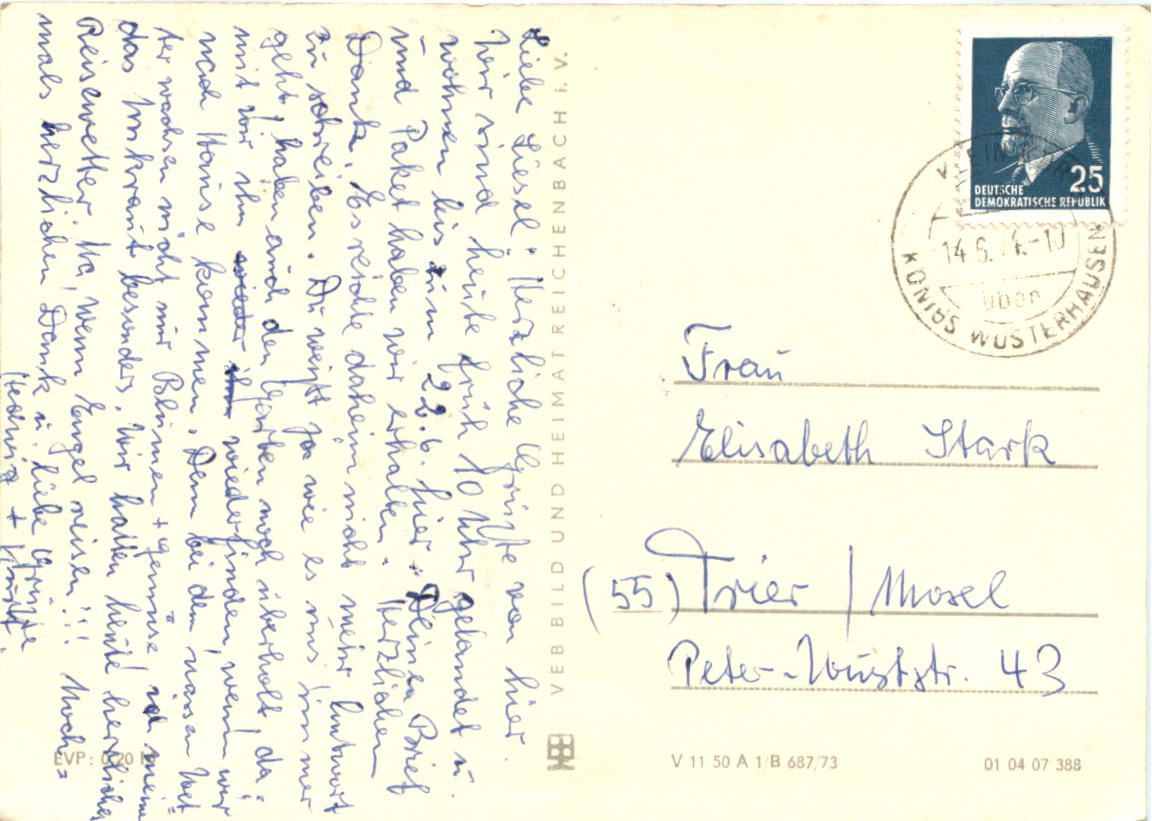 Liebe Liesel. Herzliche Grüße von hier.
Wir sind heute früh 10 Uhr gelandet u.
wohnen bis zum 22.6. hier. Deinen Brief
und Paket haben wir erhalten. Herzlichen
Dank. Es reichte daheim nicht mehr Antwort
zu schreiben. Du weißt ja wie es uns immer
geht, haben auch den Garten noch überholt, da-
mit wir ihn wiederfinden, wenn wir
nach Hause kommen. Denn bei dem nassen Wet
ter wachsen nicht nur Blumen + Gemüse, nein
das Unkraut besonders. Wir hatten heute herrliches
Reisewetter. Na, wenn Engel reisen!!! Noch-
mals herzlichen Dank u. liebe Grüße
Hedwig + Kurt.
VEB BILD UND HEIMAT REICHENBACH i. V.
EVP: 0,20 M
DEUTSCHE
DEMOKRATISCHE REPUBLIK
25
14.6.74.-10
über
KÖNIGS WUSTERHAUSEN
Frau
Elisabeth Stark
(55) Trier / Mosel
Peter-Wuststr. 43
V 11 50 A 1/B 687/73
01 04 07 388